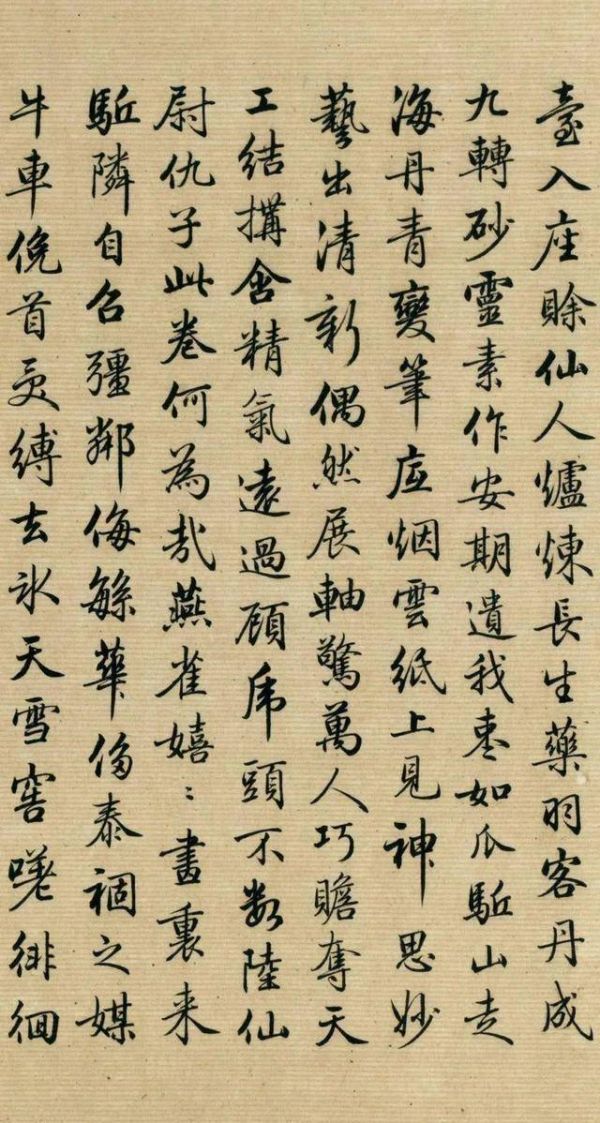 臺入座賒仙人爐煉長生藥羽客丹成
九轉砂靈素作安期遺我棗如瓜駈山走
海丹青變筆底烟雲紙上見神思妙
藝出清新偶然展軸驚萬人巧贍奪天
工結搆含精氣遠過顧虎頭不數陸仙
尉仇子此卷何為哉燕雀嬉〻畫裏来
駈隣自召彊鄰侮緐華侈泰禍之媒
牛車俛首受縛去氷天雪窖嗟徘徊